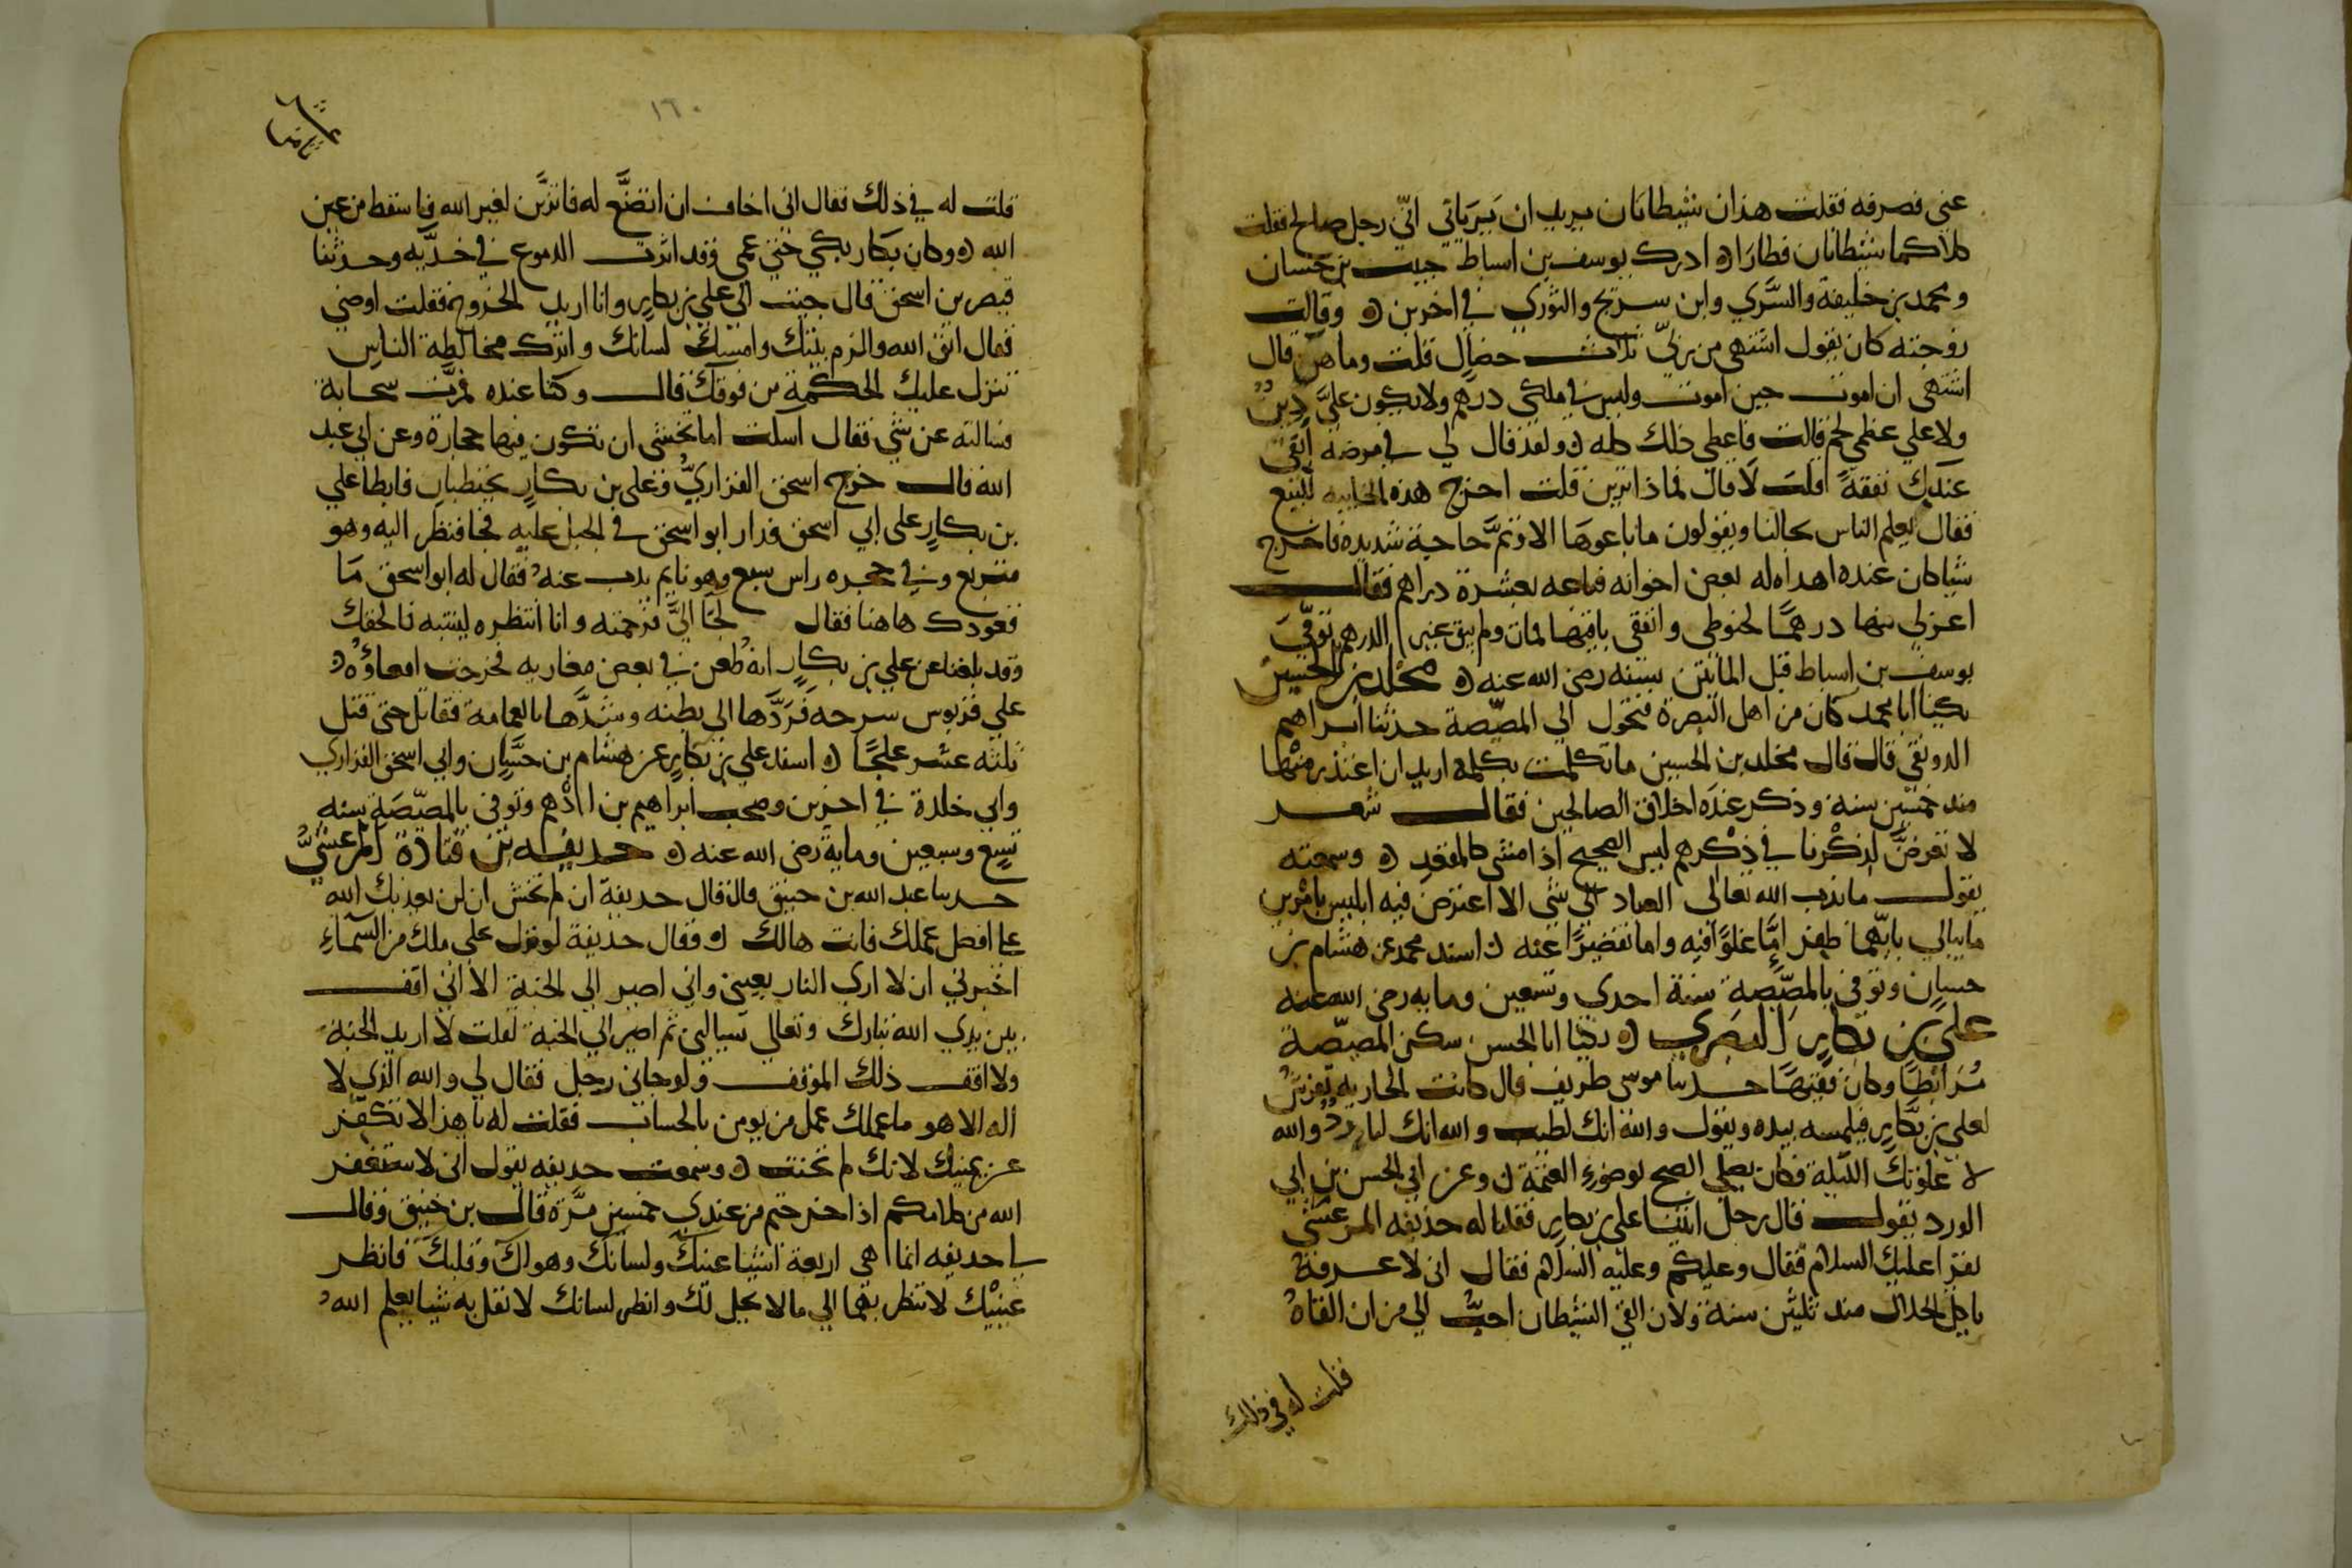 عني فصرفه فقلت هذان شيطانان يريدان يرياني اني رجل صالح فقلت
كلاكما شيطانان فطارا ادرك يوسف بن اسباط حبيب بن حسان
ومحمد بن خليفة والسَّري وابن سريج والثوري في اخرين وقالت
زوجته كان يقول اشتهي من ربي ثلاث خصال قلت وما هن قال
اشتهي ان اموت حين اموت وليس في ملكي درهم ولا يكون عليَّ دين
ولا علي عظمي لحم قالت فاعطي ذلك كله ولقد قال لي في مرضه ابقي
عندك نفقة قلت لا قال فماذا ترين قلت اخرج هذه الخابيه للبيع
فقال يعلم الناس بحالنا ويقولون ما باعوها الا وثمَّ حاجة شديده فاخرج
شيا كان عنده اهداه له بعض اخوانه فباعه بعشرة دراهم فقال
اعزلي منها درهمًا لحنوطي وانفقي باقيها فمات ولم يبق غير الدرهم توفي
يوسف بن اسباط قبل المائتين بسنه رضي الله عنه مخلد بن الحسين
يكنا ابا محمد كان من اهل البصرة فتحول الي المصّيصة حدثنا ابراهيم
الدورقي قال قال مخلد بن الحسين ما تكلمت بكلمه اريد ان اعتذر منها
منذ خمسين سنة وذكر عنده اخلاق الصالحين فقال شعر
لا تعرضَّن لذكْرنا في ذِكْرهم ليس الصحيح اذا مشى كالمقعد وسمعته
يقول ما ندب الله تعالى العباد الي شي الا اعترض فيه ابليس بامرين
ما يبالي بايّهما ظفر امَّا غلوًا فيه واما تقصيرًا عنه اسند محمد عن هشام بن
حسان وتوفي بالمصّيصة سنة احدي وتسعين ومايه رضي الله عنه
علي بن بكار البصري يكنا ابا الحسن سكن المصيّصة
مُرابطًا وكان فقيهًا حدثنا موسى طريف قال كانت الجاريه تفرش
لعلي بن بكّار فيلمسه بيده ويقول والله انك لطيب والله انك لبارد والله
لا علوتك الليلة فكان يصلي الصبح بوضوء العتمة وعن ابي الحسن بن ابي
الورد يقول قال رجل اتينا علي بن بكار فقلنا له حذيفه المرعشي
يقرا عليك السلام فقال وعليكم وعليه السلام فقال اني لاعرفه
ياكل الحلال منذ ثلثين سنة ولان القي الشيطان احبُّ الي من ان القاهُ
قلت له في ذلك
١٦٠
قلت له في ذلك فقال اني اخاف ان اتصنَّع له فاتزيَّن لغير الله فاسقط من عين
الله وكان بكار يبكي حتي عمي وقد اثرت الدموع في خدَّيه وحدثنا
قيصر بن اسحق قال جيت الي علي بن بكار وانا اريد الخروج فقلت اوصني
فقال اتق الله والزم بيتك وامسك لسانك واترك مخالطة الناس
تنزل عليك الحكمة من فوقك قال وكنا عنده فمرت سحابة
فسالته عن شي فقال اسكت اما تخشى ان تكون فيها حجارة وعن ابي عبد
الله قال خرج اسحق الفزاريُّ وعلي بن بكار يحتطبان فابطا علي
بن بكار على ابي اسحق فدار ابو اسحق في الجبل عليه فجا فنظر اليه وهو
متربع وفي حجره راس سبع وهو نايم يذب عنه فقال له ابو اسحق ما
قعودك هاهنا فقال لجَا اليَّ فرحمته وانا انتظره لينتبه فالحقك
وقد بلغنا عن علي بن بكار انه طُعن في بعض مغازيه فخرجت امعاؤه
علي قربوس سرجه فَرَدَّها الى بطنه وشدَّها بالعمامة فقاتل حتى قتل
ثلثه عشر علجًا اسند علي بن بكار عن هشام بن حسَّان وابي اسحق الفزاري
وابي خلدة في اخرين وصحب ابراهيم بن ادْهم وتوفي بالمصّيصَة سنه
تسع وتسعين وماية رضي الله عنه حذيفه بن قتادة المرعشيُّ
حدثنا عبد الله بن خبيق قال قال حذيفة ان لم تخش ان لن يعذبك الله
علي افضل عملك فانت هالك فقال حذيفة لو نزل علي ملك من السَّماء
اخبرني ان لا اري النار بعيني واني اصير الى الجنة الا اني اقف
بين يدي الله تبارك وتعالي يسالني ثم اصير الي الجنة لقلت لا اريد الجنة
ولا اقف ذلك الموقف ولو جاني رجل فقال لي والله الذي لا
اله الا هو ما عملك عمل من يومن بالحساب فقلت له يا هذا لا تكفّر
عن يمينك لانك لم تحنث وسمعت حذيفه يقول اني لاستغفر
الله من كلامكم اذا خرجتم من عندي خمسين مرَّة قال بن خبيق وقال
يا حذيفه انما هي اربعة اشيا عينك ولسانك وهواك وقلبك فانظر
عينيْك لا تنظر بهما الي ما لا يحل لك وانظر لسانك لا تقل به شيا يعلم الله